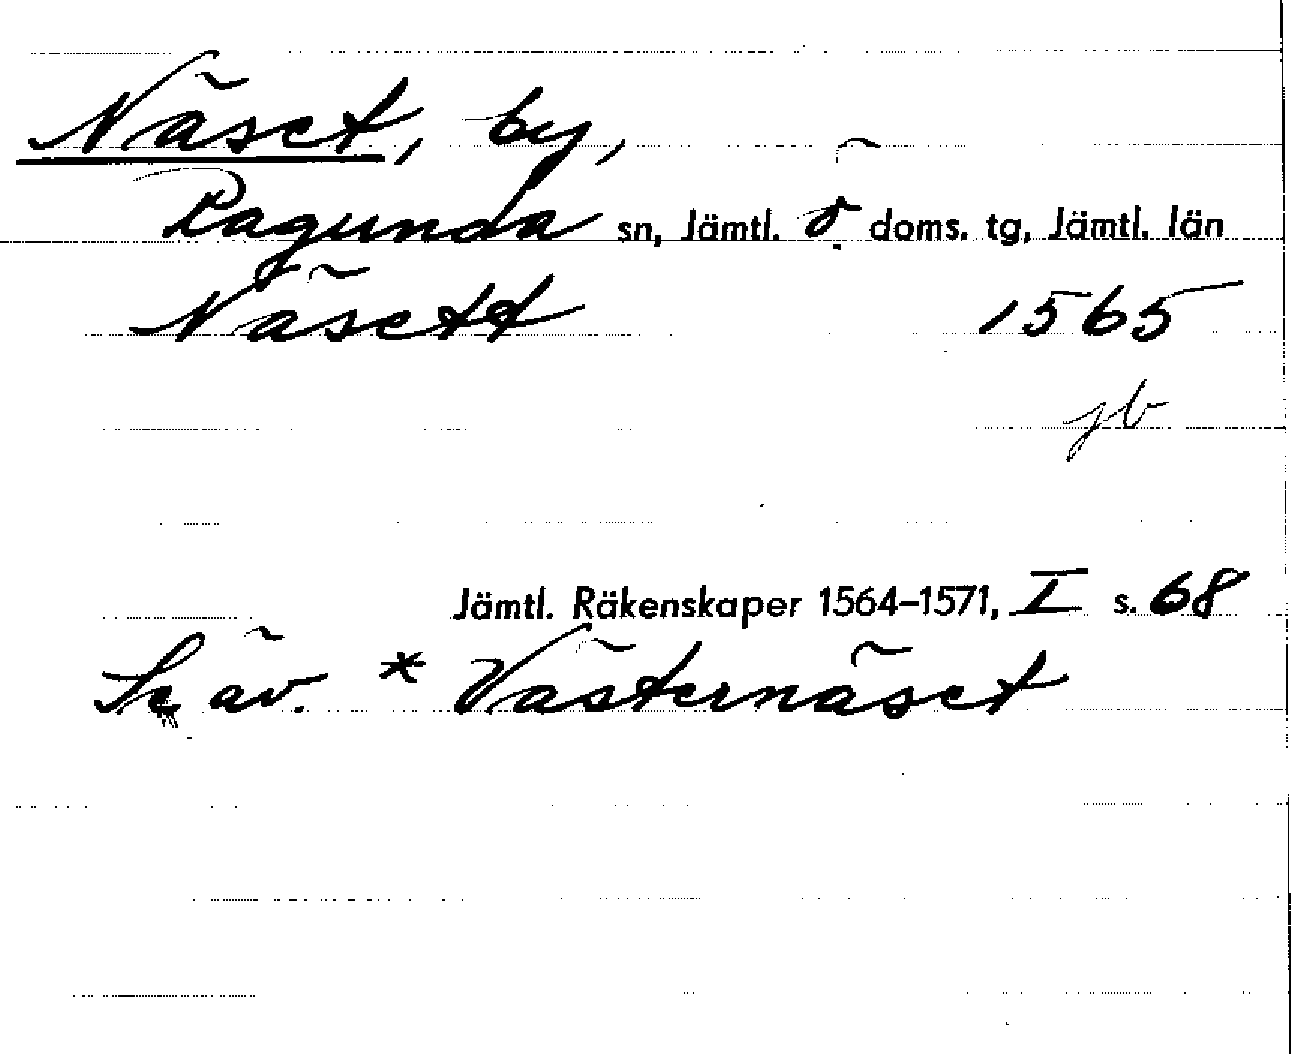 Näset, by,
Ragunda sn, Jämtl. ö doms. tg, Jämtl. län
Näsett 1565
jb
Jämtl. Räkenskaper 1564–1571, I s. 68
Se äv. * Västernäset